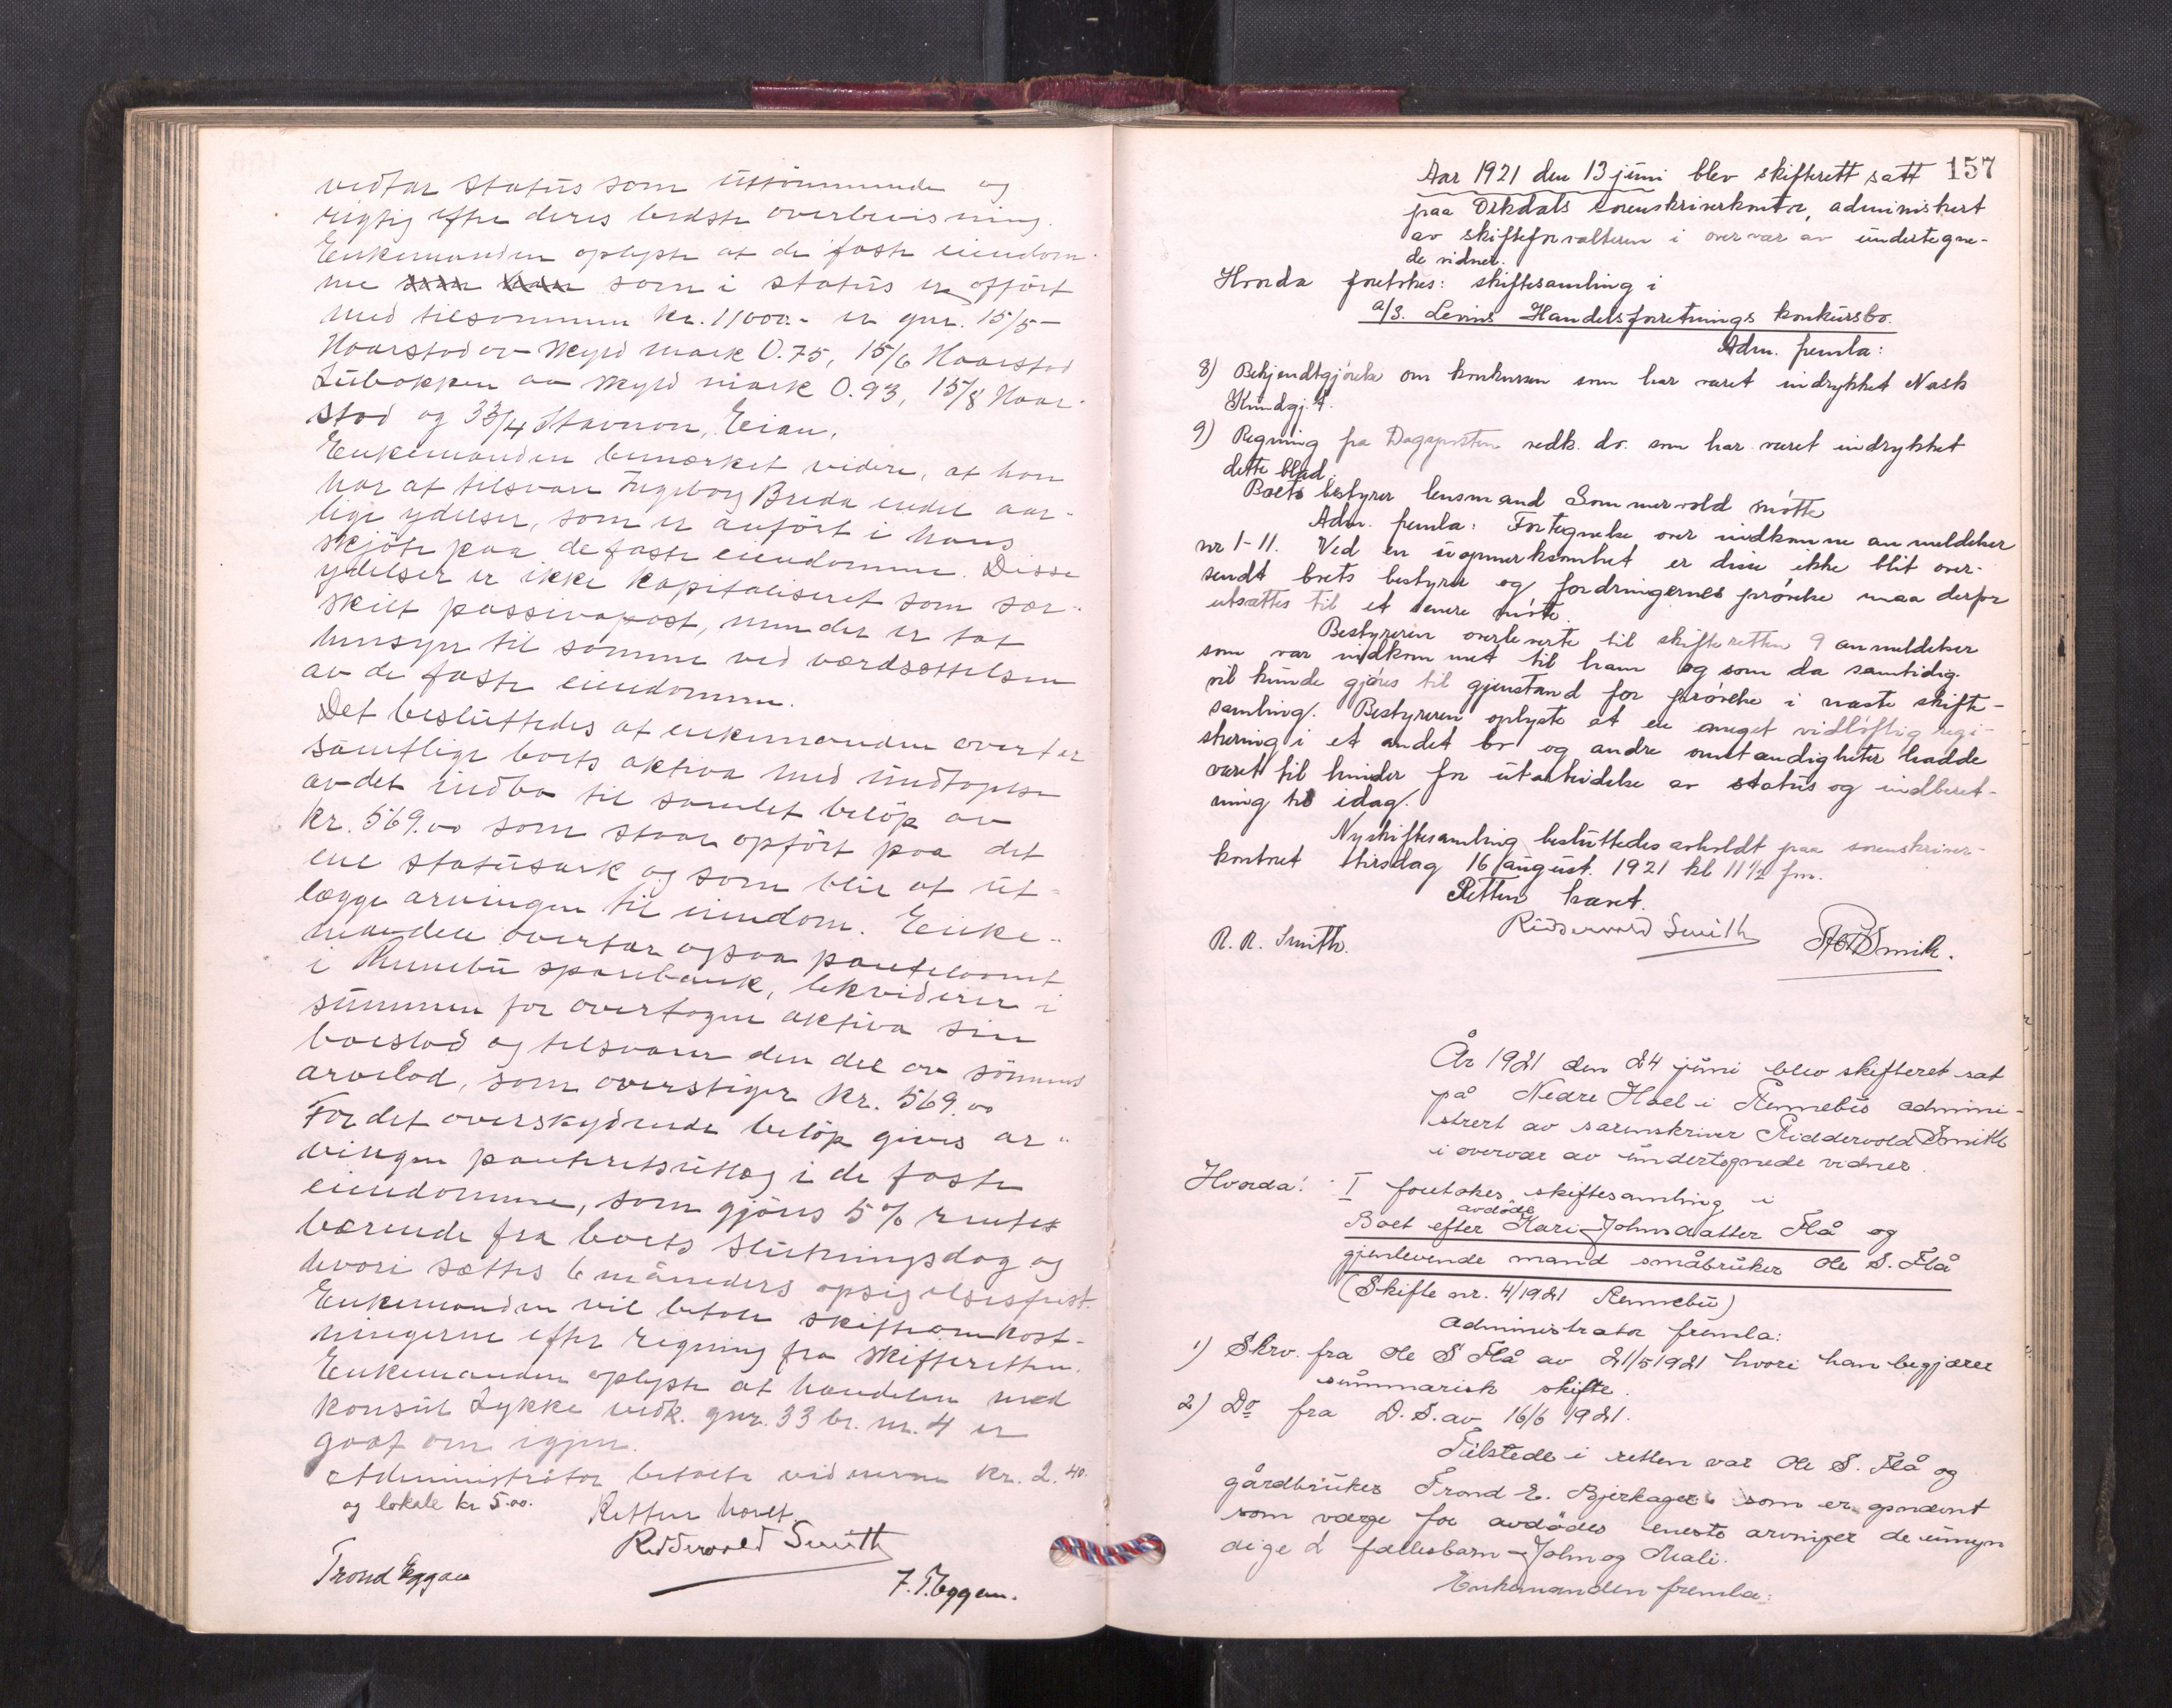 vedtar status som uttømmende og
rigtig efter deres bedste overbevisning.
Enkemanden oplyste at de faste eiendom-
me som i status er opført
med tilsammen kr. 11000.- er gnr. 15/5 -
Haarstad av skyld mark 0.75, 15/6 Haarstad
Lübakken av skyld mark 0.93, 15/8 Haar-
stad og 33/4 Stavnon, Eian.
Enkemanden bemærket videre, at han
har at tilsvare Ingeborg Breda endel aar-
lige ydelser, som er anført i hans
skjøte paa de faste eiendomme. Disse
ydelser er ikke kapitaliseret som sær-
skilt passivapost, men der er tat
hensyn til samme ved værdsættelsen
av de faste eiendomme.
Det besluttedes at enkemanden overtar
samtlige boets aktiva med undtagelse
av det indbo til samlet beløp av
kr. 569.00 som staar opført paa det
ene statusark og som blir at ut-
lægge arvingen til eiendom. Enke-
manden overtar ogsaa pantelaanet
i Rennebu sparebank, likviderer i
summen for overtagne aktiva sin
boeslod og tilsvarer den del av sønnens
arvelod, som overstiger kr. 569.00
For det overskydende beløp gives ar-
vingen panteretsutlæg i de faste
eiendomme, som gjøres 5% rente
bærende fra boets slutningsdag og
hvori sættes 6 måneders opsigelsesfrist.
Enkemanden vil betale skifteomkost-
ningerne efter regning fra skifteretten.
Enkemanden oplyste at handelen med
konsul Lykke vedk. gnr. 33 br. nr. 4 er
gaat om igjen.
Administrator betalte vidnerne kr. 2.40
og lokale kr 5.00.
Retten hævet
Ridderwold Smith
Trond Eggan
J. T. Eggan.
157
Aar 1921 den 13 juni blev skifterett satt
paa Orkdals sorenskriverkontor, administrert
av skifteforvalteren i overvær av undertegne-
de vidner.
Hvorda foretokes: skiftesamling i
a/s. Levins Handelsforretnings konkursbo.
Adm. fremla:
8) Bekjendtgjørelse om konkursen som har været indrykket Norsk
Kundgj.t.
9) Regning fra Dagsposten vedk. do. som har været indrykket
dette blad.
Boets bestyrer lensmand Sommervold møtte
Adm. fremla: Fortegnelse over indkomne anmeldelser
nr 1-11. Ved en uopmerksomhet er disse ikke blit over-
sendt boets bestyrer og fordringernes prøvelse maa derfor
utsættes til et senere møte.
Bestyreren overleverte til skifteretten 9 anmeldelser
som var indkommet til ham og som da samtidig
vil kunde gjøres til gjenstand for prøvelse i næste skifte-
samling. Bestyreren oplyste at en meget vidløftig regi-
strering i et andet bo og andre omstændigheter hadde
været til hinder for utarbeidelse av status og indberet-
ning til idag.
Ny skiftesamling besluttedes avholdt paa sorenskriver-
kontoret tirsdag 16 august. 1921 kl 11 1/2 fm.
Retten hævet.
R. R. Smith.
Ridderwold Smith
Smith.
År 1921 den 24 juni blev skifteret sat
på Nedre Hoel i Rennebu admini-
strert av sorenskriver Ridderwold Smith
i overvær av undertegnede vidner.
Hvorda: I foretokes skiftesamling i
avdøde
Boet efter Kari Johnsdatter Flå og
gjenlevende mand småbruker Ole S. Flå
(Skifte nr. 4/1921 Rennebu)
Administrator fremla:
1) Skrv. fra Ole S Flå av 21/5 1921 hvori han begjærer
summarisk skifte.
2) Do fra D.S. av 16/6 1921.
Tilstede i retten var Ole S. Flå og
gårdbruker Trond E. Bjerkager som er opnævnt
som værge for avdødes eneste arvinger de umyn
dige 2 fællesbarn - John og Mali.
Enkemanden fremla: